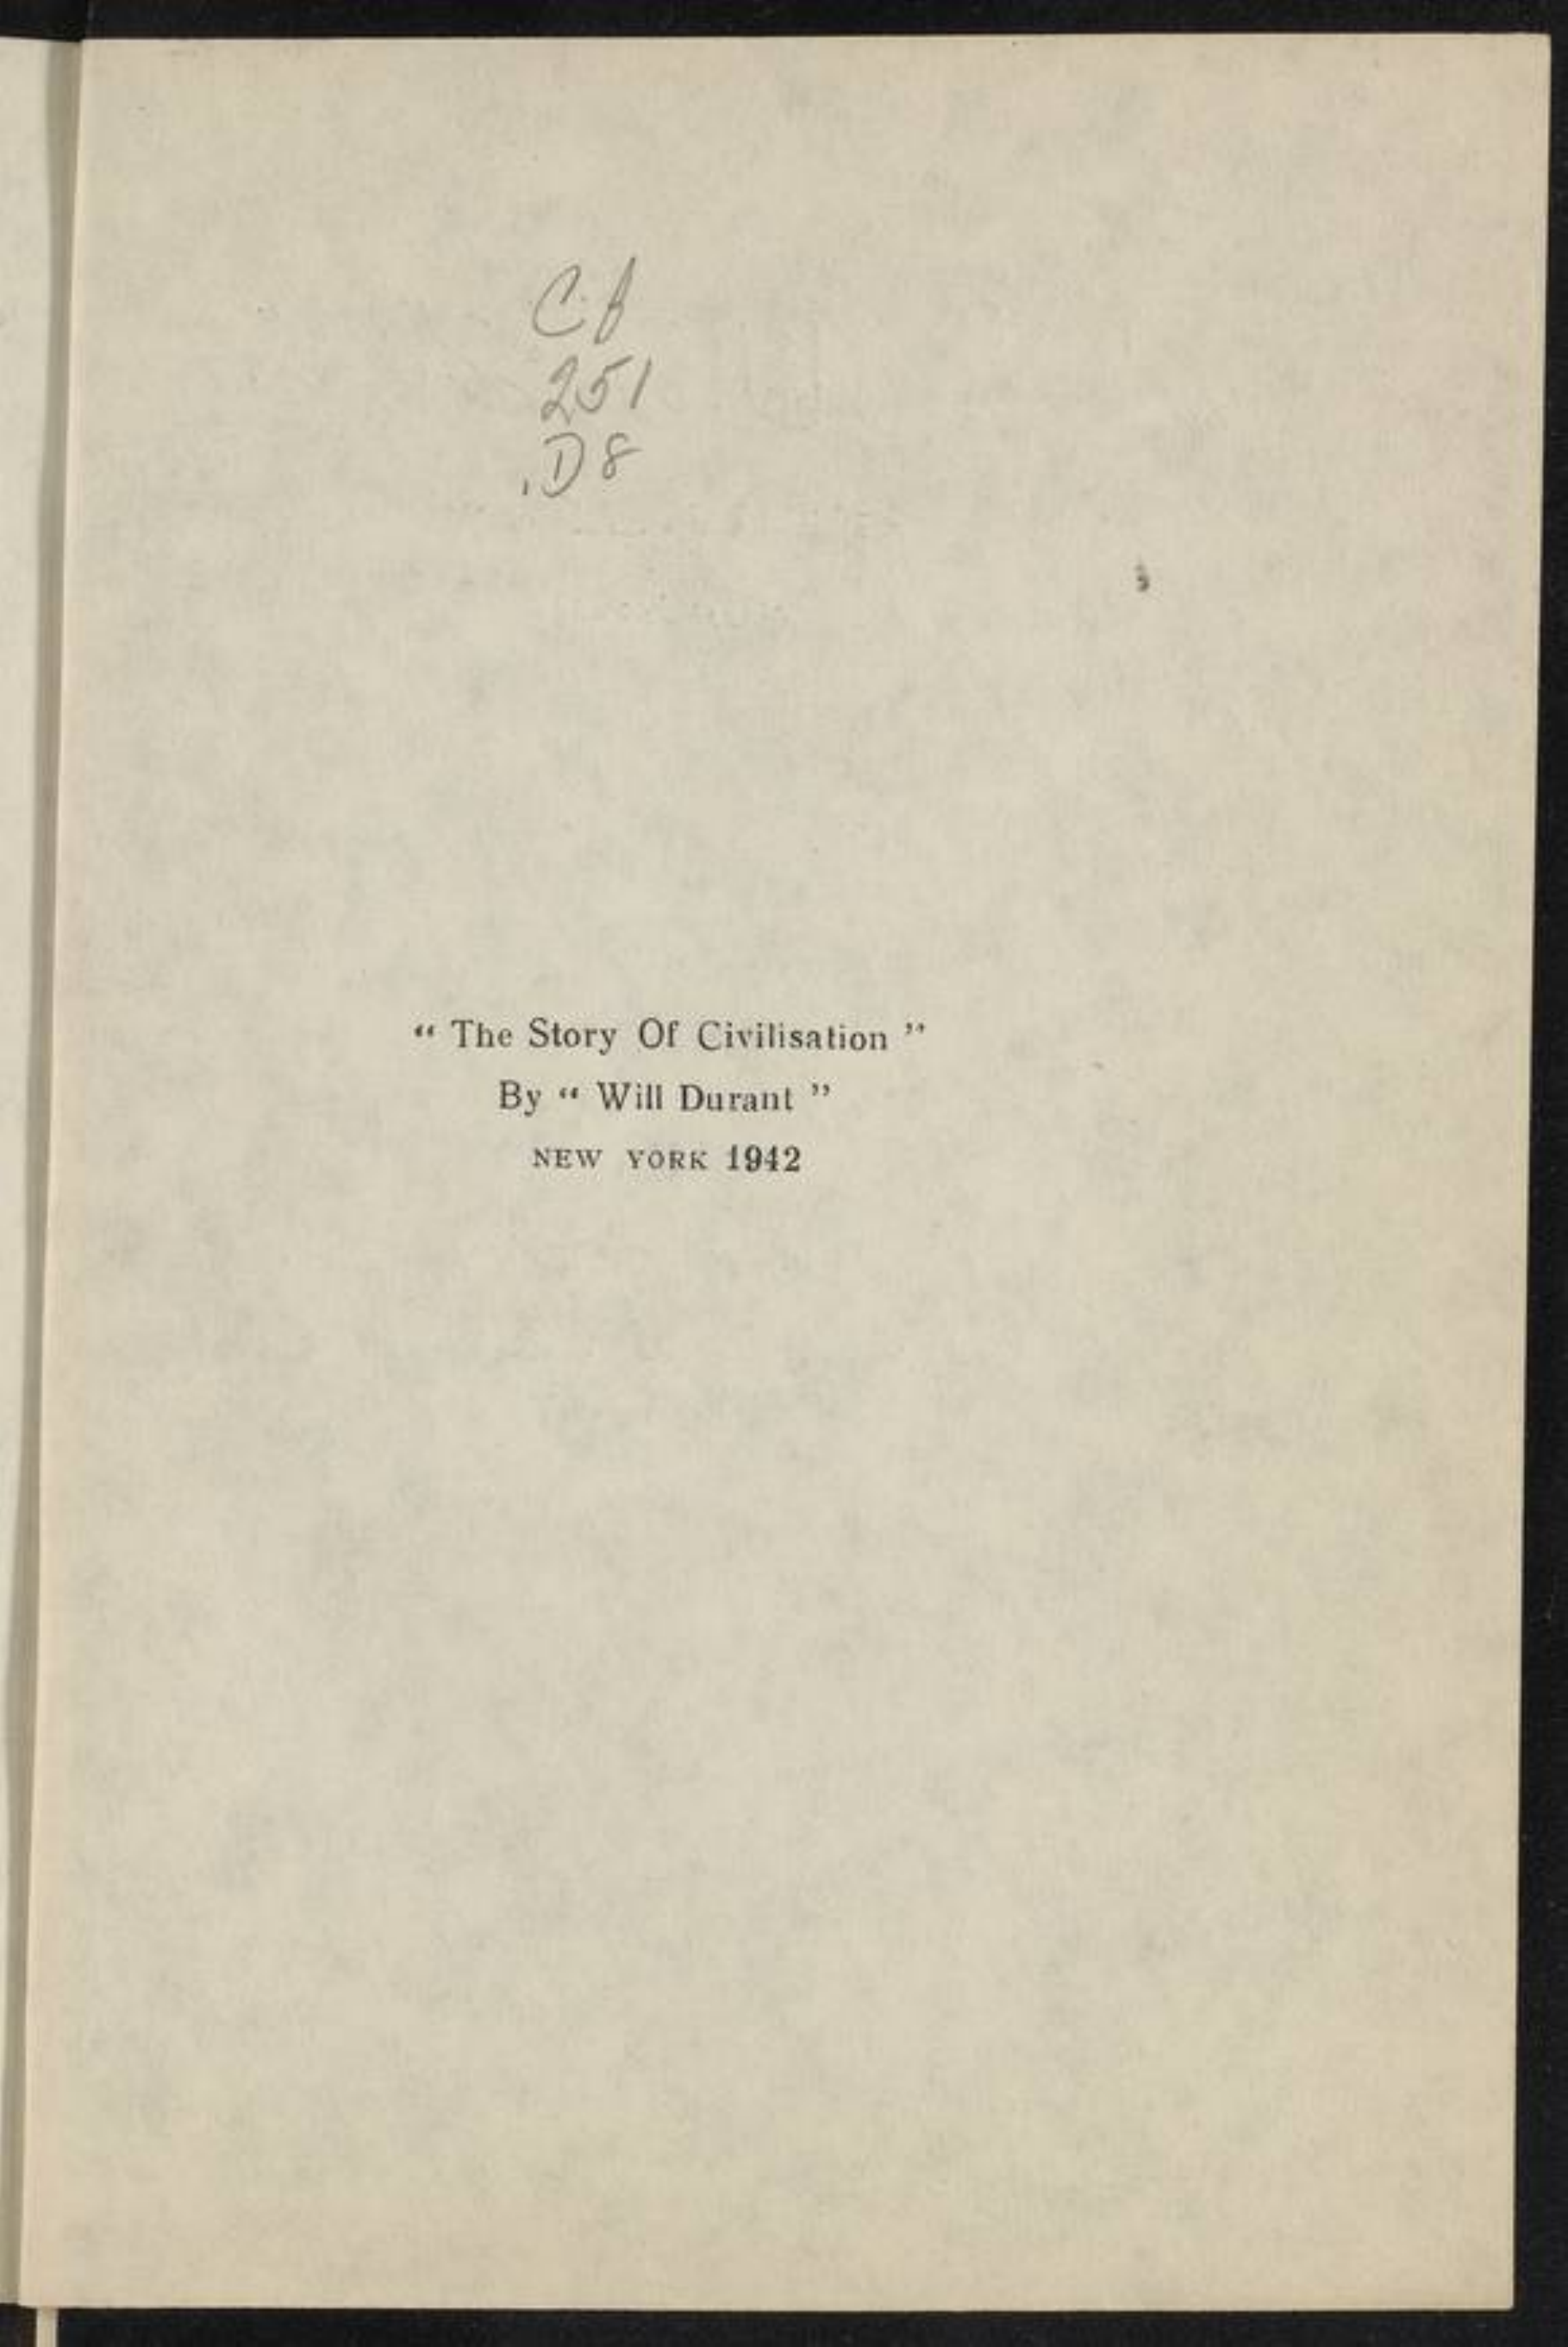 CB
251
.D8
“ The Story Of Civilisation ”
By “ Will Durant ”
NEW YORK 1942